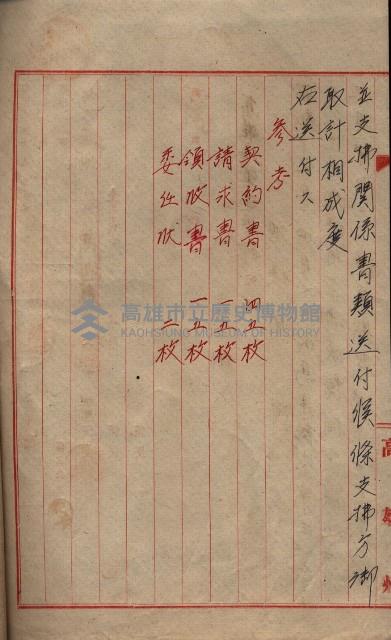 並支拂關係書類送付候條支拂方御
取計相成度
右送付ス
參考
契約書 四五枚
請求書 一五枚
領收書 一五枚
委任狀 二枚
高雄州
高雄市立歷史博物館
KAOHSIUNG MUSEUM OF HISTORY